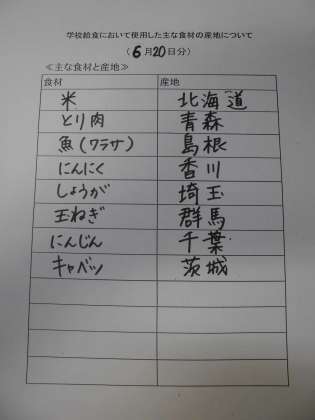 学校給食において使用した主な食材の産地について
（6月20日分）
≪主な食材と産地≫
食材 産地
米 北海道
とり肉 青森
魚(ワラサ) 島根
にんにく 香川
しょうが 埼玉
玉ねぎ 群馬
にんじん 千葉
キャベツ 茨城